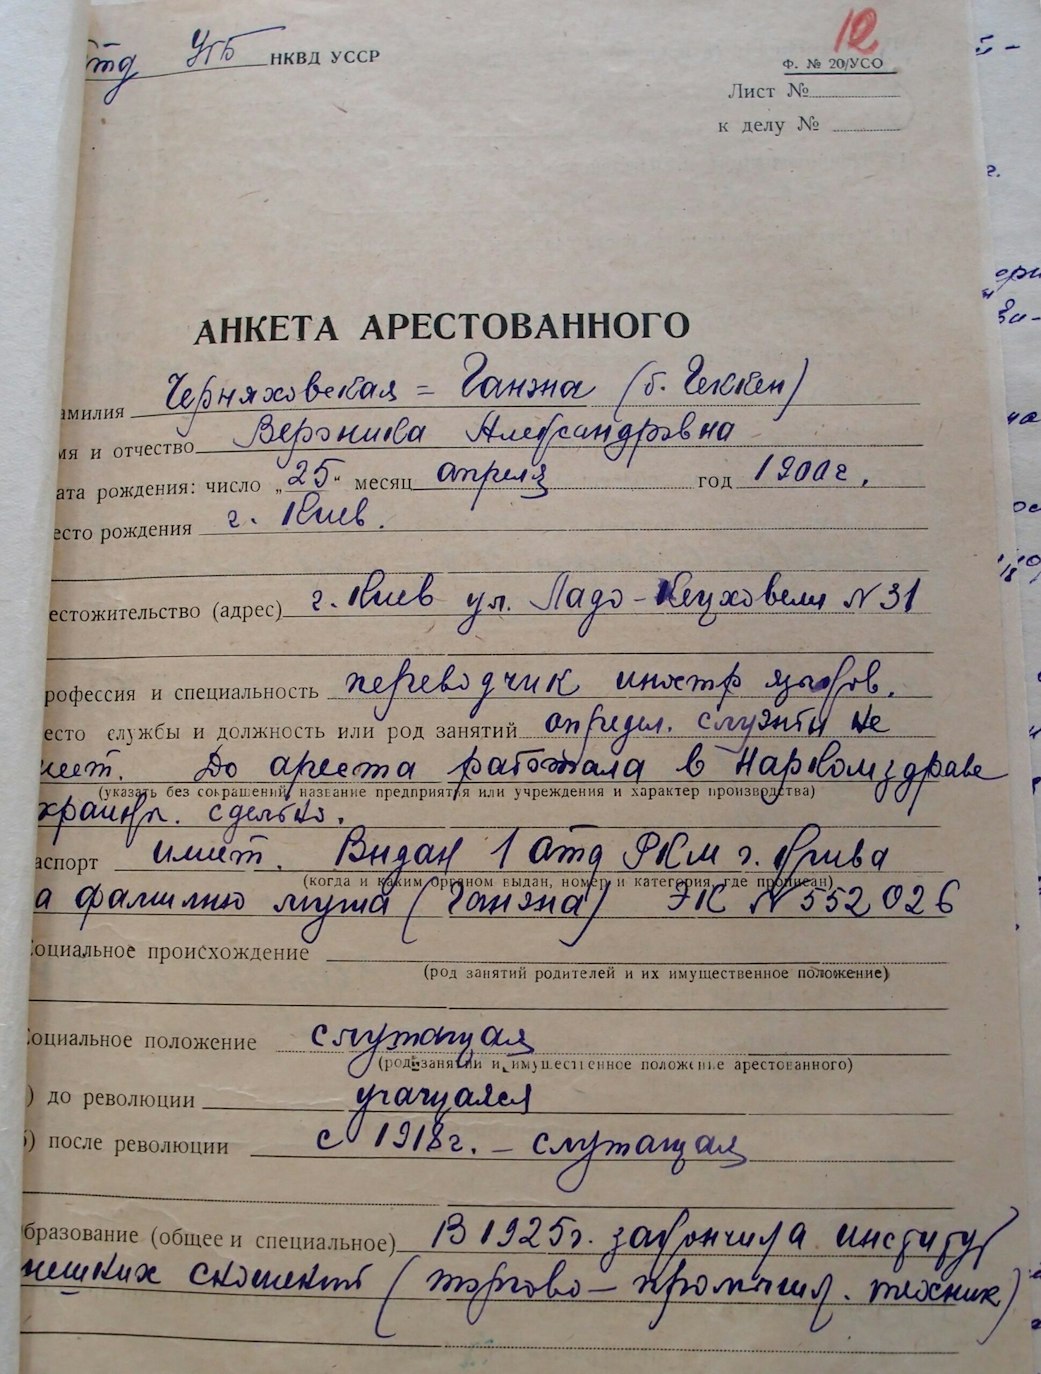 отд УГБ НКВД УССР
12
Ф. № 20/УСО
Лист №
к делу №
АНКЕТА АРЕСТОВАННОГО
амилия Черняховская = Ганжа (б. Геккен)
мя и отчество Вероника Александровна
ата рождения: число „25“ месяц апреля год 1900 г.
есто рождения г. Киев.
естожительство (адрес) г. Киев ул. Ладо-Кецховели N 31
рофессия и специальность переводчик иностр языков.
есто службы и должность или род занятий определ. службы не
меет. До ареста работала в Наркомздраве
(указать без сокращений название предприятия или учреждения и характер производства)
сдельно.
аспорт имеет. Выдан 1 отд РКМ г. Киева
(когда и каким органом выдан, номер и категория, где прописан)
а фамилию мужа (Ганжа) ЭК N 552026
Социальное происхождение
(род занятий родителей и их имущественное положение)
Социальное положение служащая
(род занятий и имущественное положение арестованного)
) до революции учащаяся
б) после революции с 1918 г. – служащая
бразование (общее и специальное) В 1925 г. закончила институт
нешних сношений (торгово – промышл. техник)